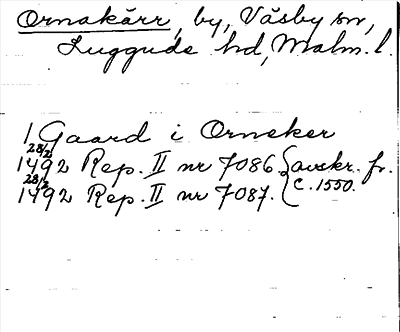 Ornakärr, by, Väsby sn,
Luggude hd, Malm. l.
1 Gaard i Orneker
28/2 1492 Rep. II nr 7086 { avskr. fr.
28/2 1492 Rep. II nr 7087. { c. 1550.